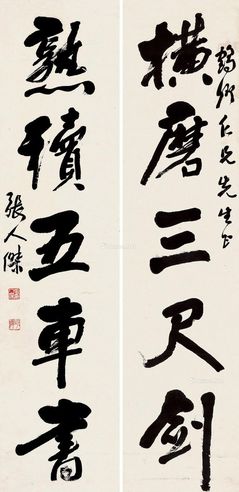 鶴卿仁兄先生正
横磨三尺剑
熟績五車書
張人傑